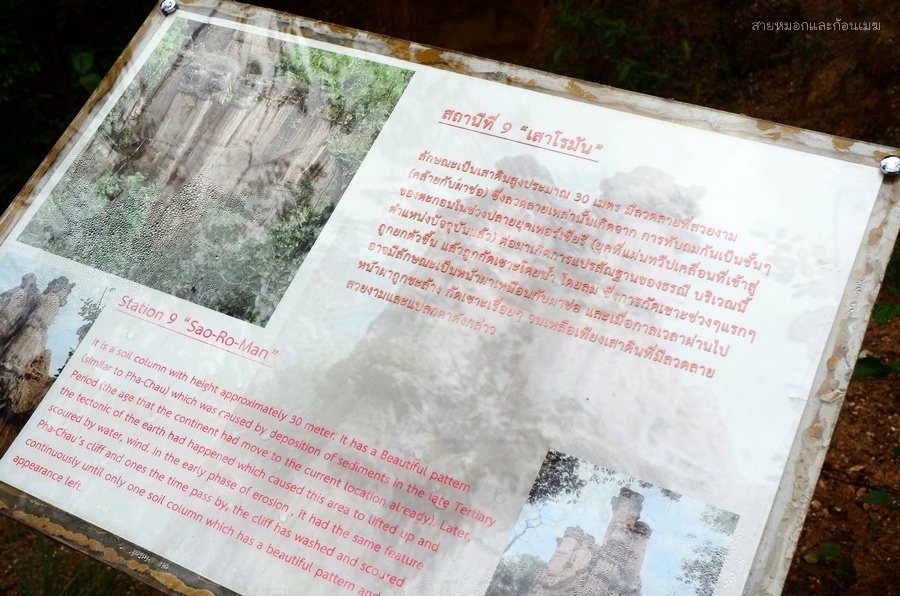 สายหมอกและก้อนเมฆ
สถานีที่ 9 "เสาโรมัน"
ลักษณะเป็นเสาดินสูงประมาณ 30 เมตร มีลวดลายที่สวยงาม
(คล้ายกับผาช่อ) ซึ่งลวดลายเหล่านั้นเกิดจาก การทับถมกันเป็นชั้นๆ
ของตะกอนในช่วงปลายยุคเทอร์เชียรี (ยุคที่แผ่นทวีปเคลื่อนที่เข้าสู่
ตำแหน่งปัจจุบันแล้ว) ต่อมาเกิดการแปรสัณฐานของธรณี บริเวณนี้
ถูกยกตัวขึ้น แล้วถูกกัดเซาะโดยน้ำ โดยลม ซึ่งการกัดเซาะช่วงๆแรกๆ
อาจมีลักษณะเป็นหน้าผาเหมือนกับผาช่อ และเมื่อกาลเวลาผ่านไป
หน้าผาถูกชะล้าง กัดเซาะเรื่อยๆ จนเหลือเพียงเสาดินที่มีลวดลาย
สวยงามและแปลกตาดังกล่าว
Station 9 "Sao-Ro-Man"
It is a soil column with height approximately 30 meter. It has a Beautiful pattern
(similar to Pha-Chau) which was caused by deposition of sediments in the late Tertiary
Period (the age that the continent had move to the current location already). Later,
the tectonic of the earth had happened which caused this area to lifted up and
scoured by water, wind. In the early phase of erosion , it had the same feature
Pha-Chau's cliff and ones the time pass by, the cliff has washed and scoured
continuously until only one soil column which has a beautiful pattern and
appearance left.